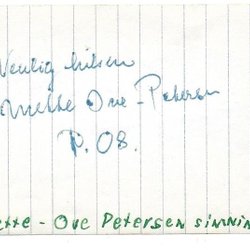 Venlig hilsen
Mette Ove-Petersen
P. 08.
ette - Ove Petersen simnin